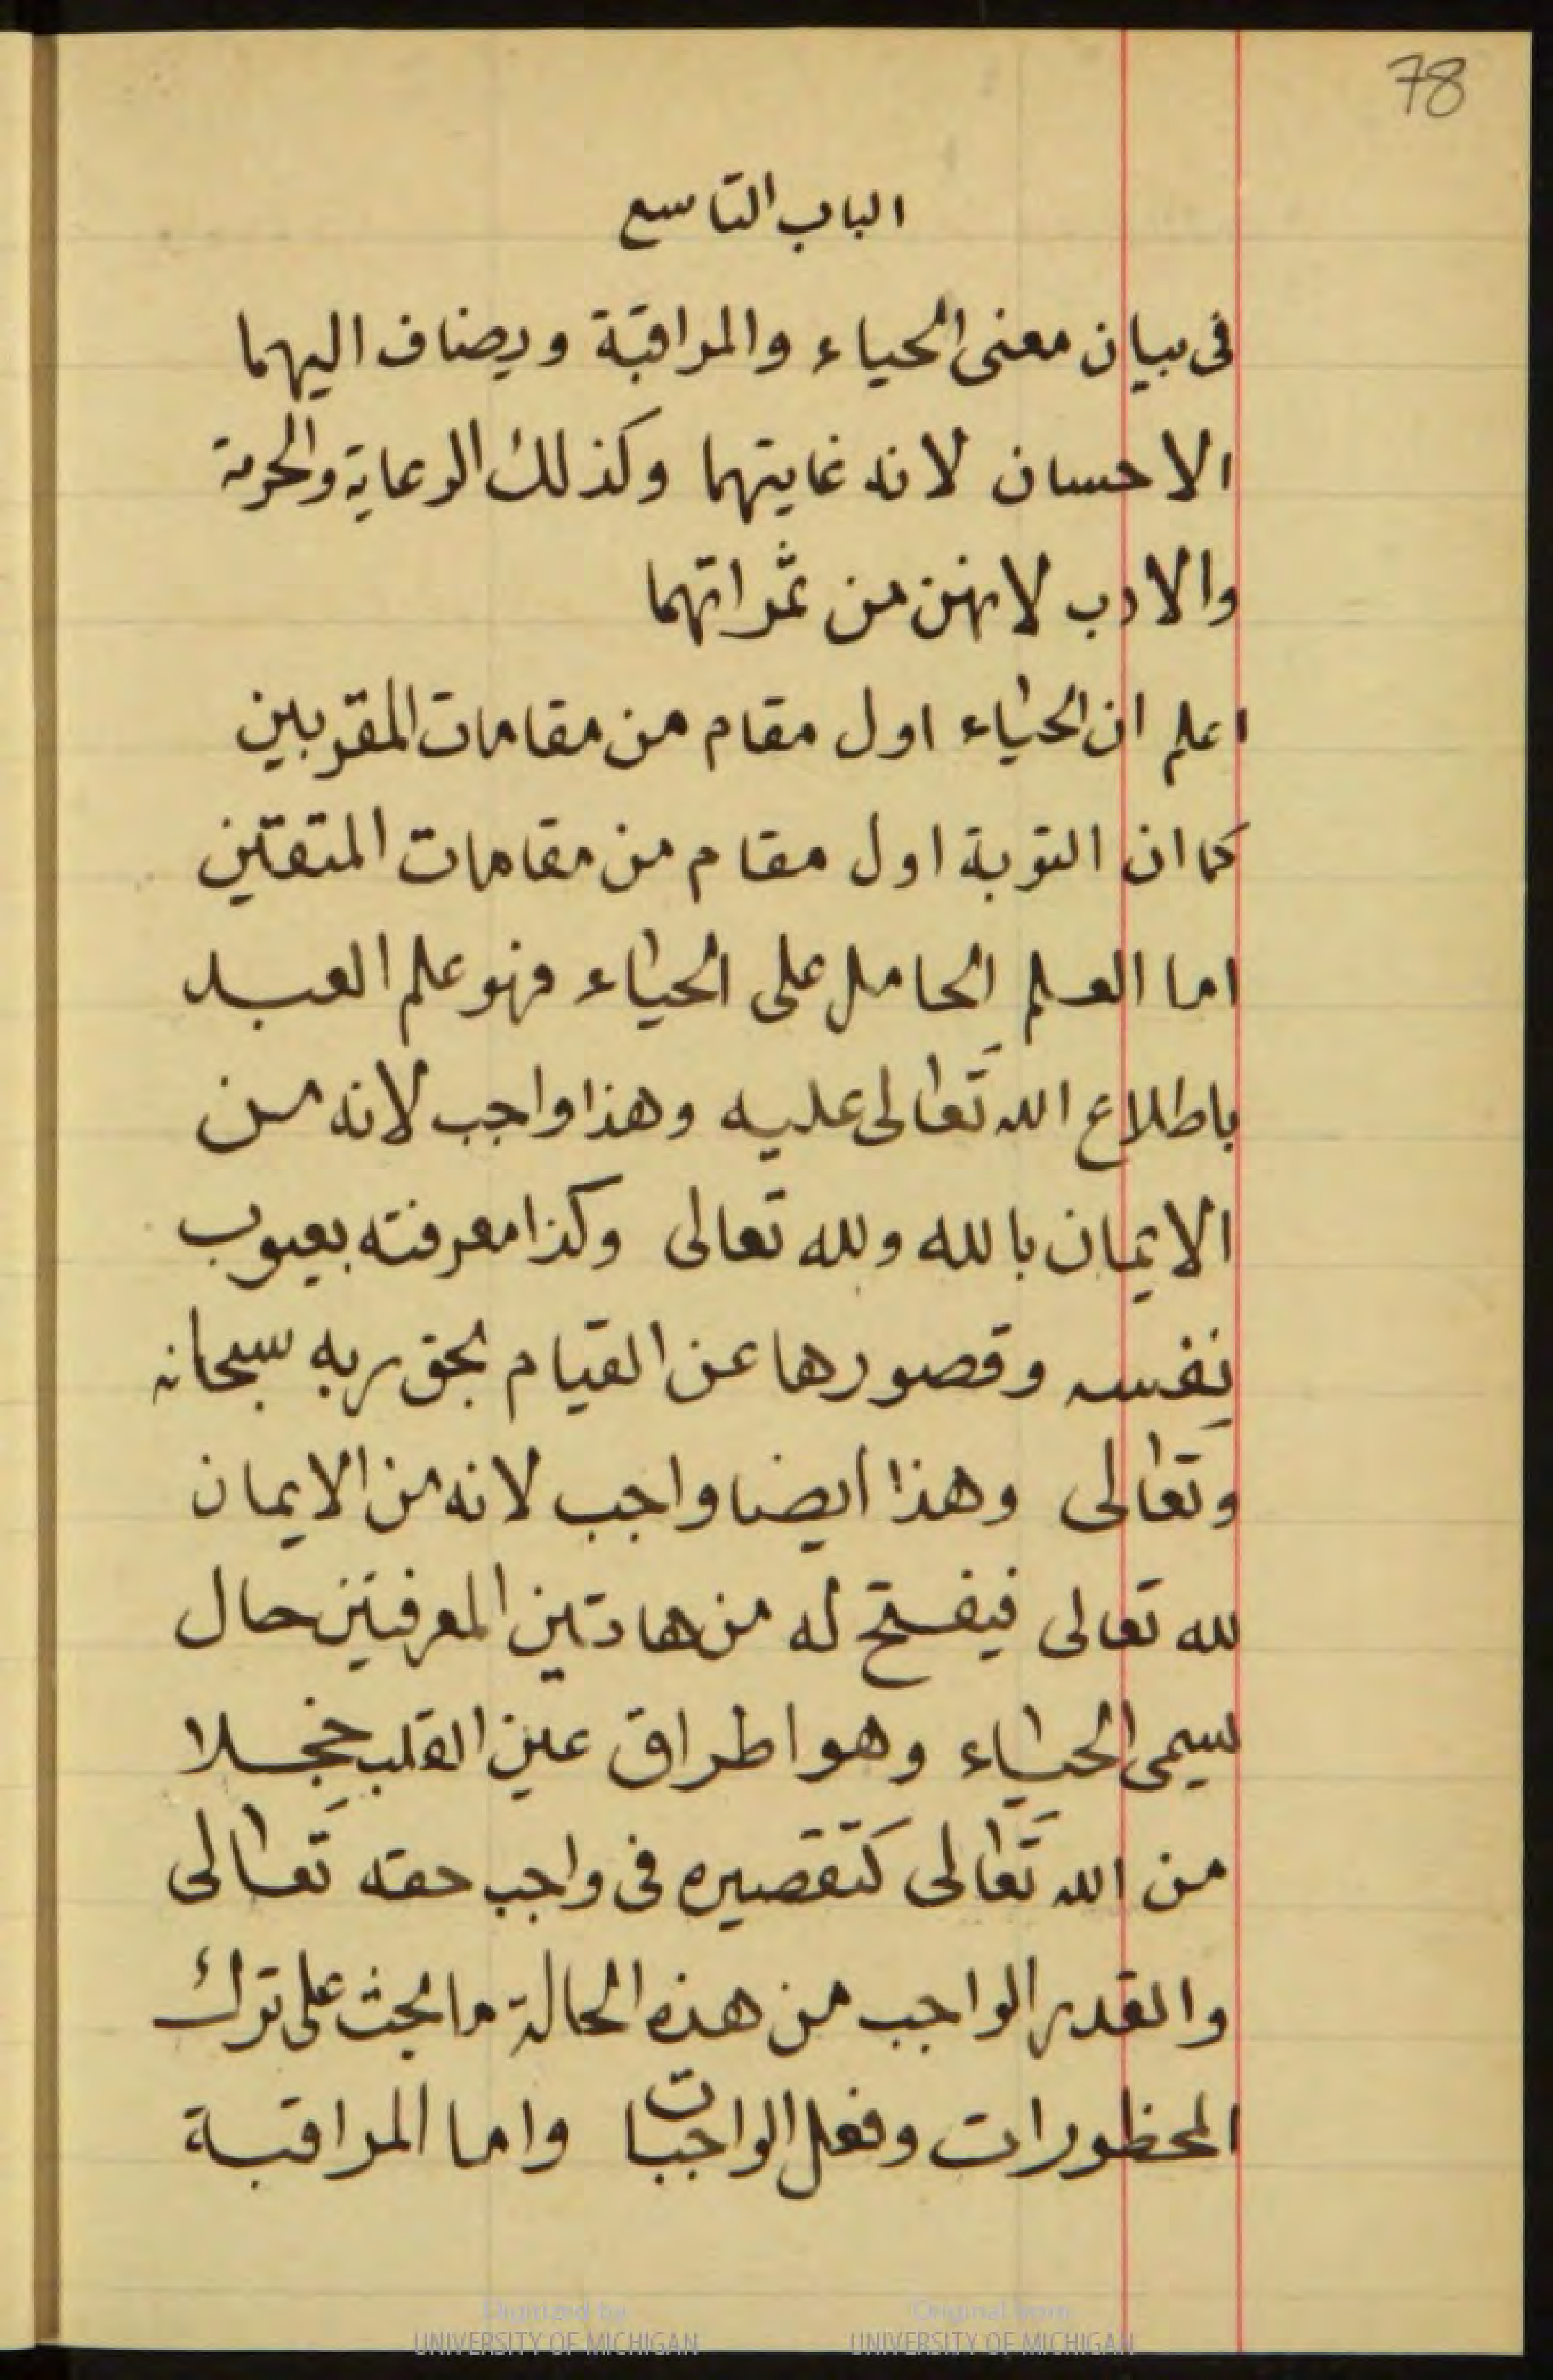 78
الباب التاسع
فى بيان معنى الحياء والمراقبة ويضاف اليهما
الاحسان لانه غايتهما وكذلك الرعاية والحرمة
والادب لانهن من ثمراتهما
اعلم ان الحياء اول مقام من مقامات المقربين
كما ان التوبة اول مقام من مقامات المتقين
اما العلم الحامل على الحياء فهو علم العبد
باطلاع الله تعالى عليه وهذا واجب لانه من
الايمان بالله ولله تعالى وكذا معرفته بعيوب
نفسه وقصورها عن القيام بحق ربه سبحانه
وتعالى وهذا ايضا واجب لانه من الايمان
لله تعالى فيفتح له من هاتين المعرفتين حال
يسمى الحياء وهو اطراق عين القلب خجلا
من الله تعالى كتقصيره فى واجب حقه تعالى
والقدر الواجب من هذه الحالة ما يحث على ترك
المحظورات وفعل الواجبات واما المراقبة
Digitized by
UNIVERSITY OF MICHIGAN
Original from
UNIVERSITY OF MICHIGAN